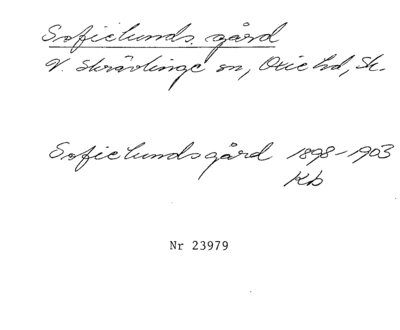 Sofielunds gård
V. Skrävlinge sn, Oxie hd, Sk.
Sofielundsgård 1898-1903
Kb
Nr 23979